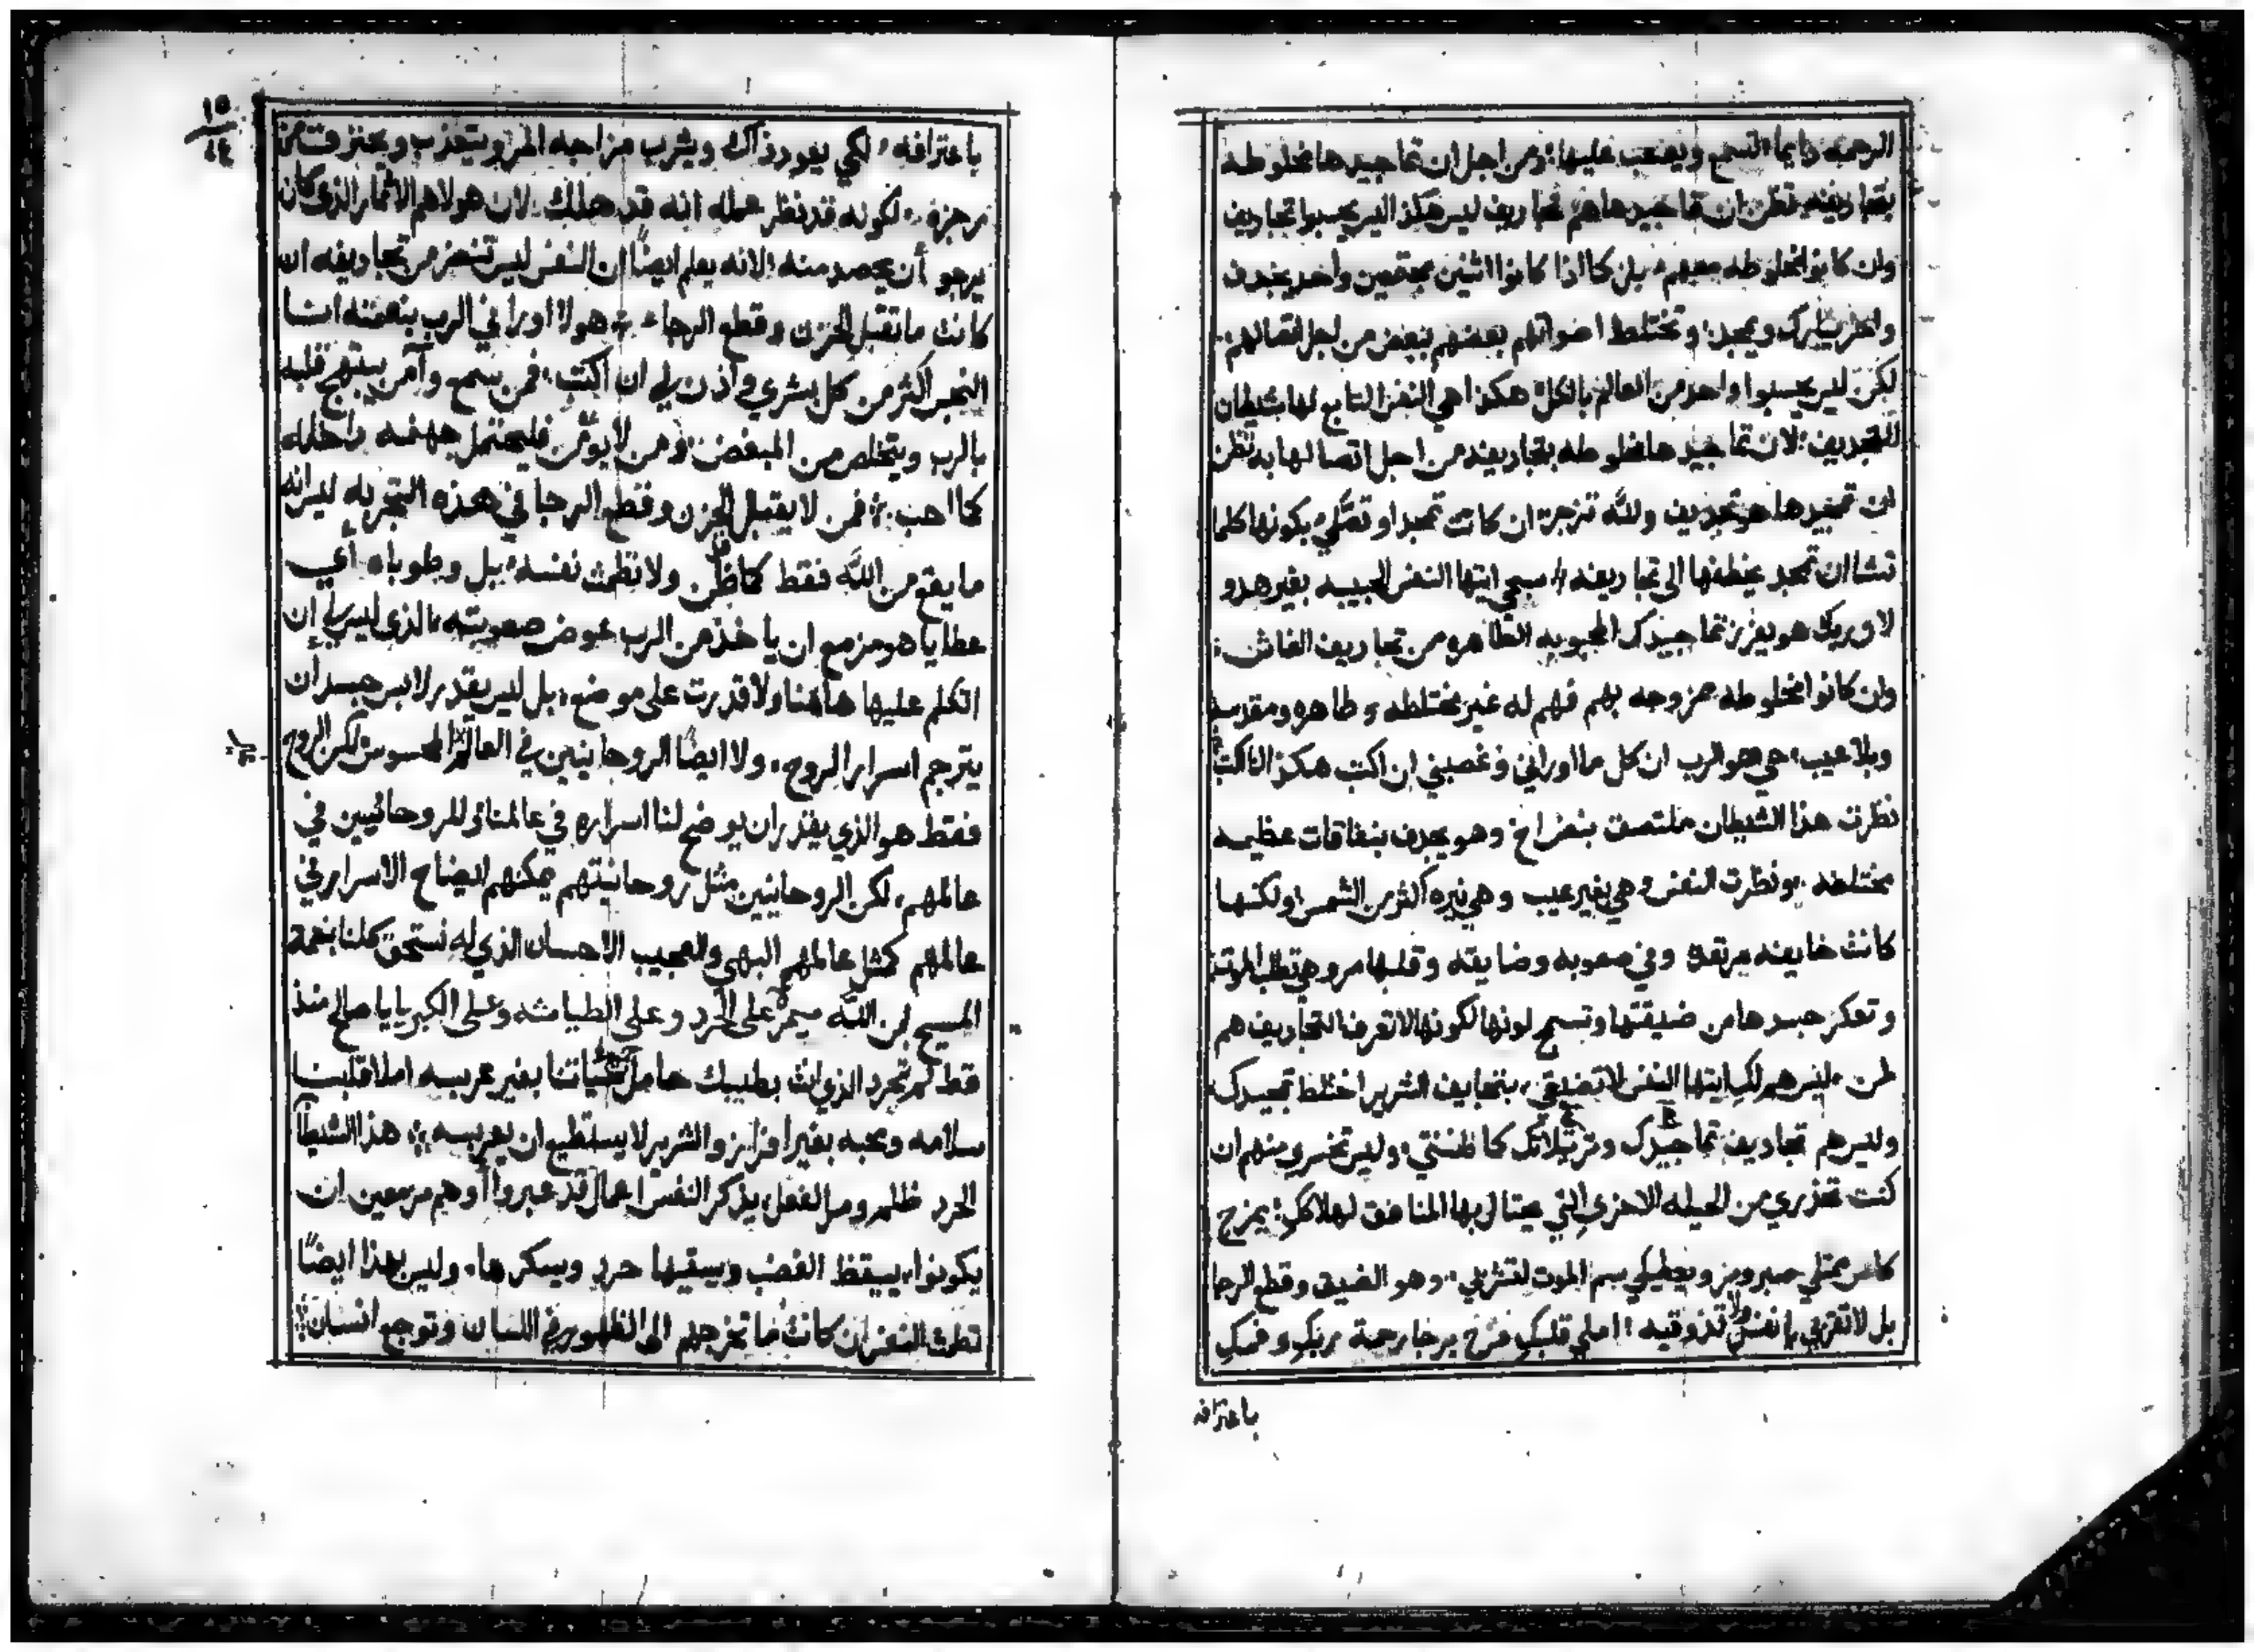 الرحمه دايما التسمج ويصعب عليها؛ ومن اجل ان تماجيدها مخلوطه
بتجاديفه تظن ان تماجيدها هم تجاديف ليس هكذا ليس يحسبوا تجاديف
وان كانوا مخلوطه معهم، بل كما اذا كانوا اثنين مجتمعين واحد يجدف
واخر يبارك ويمجد؛ وتختلط اصواتهم بعضهم ببعض من اجل اتصالهم
لكن ليس يحسبوا واحد من العالم بالكل، هكذا هي النفس التابع لها شيطان
التجديف؛ لان تماجيدها مخلوطه بتجاديفه من اجل اتصالها به تظن
ان تمجيدها هو تجديف ولله تزجر ان كانت تمجد او تصلي، بكونها كلما
تشا ان تمجد يخطفها الى تجاديفه // سبحي ايتها النفس الحبيبه بغير هدو
لاويريك هو يفرز تماجيدك المحبوبه الطاهره من تجاديف الغاش:
وان كانوا مخلوطه ممزوجه بهم فهم له غير مختلطه و طاهره ومقدسه
وبلا عيب، حي هو الرب ان كل ما اوراني وغصبني ان اكتب هكذا انا اكتب
نظرت هذا الشيطان ملتصق بنفس اخ وهو يجدف بنفاقات عظيمه
مختلطه، ونظرت النفس وهي بغير عيب وهي نيره اكثر من الشمس، ولكنها
كانت خايفه مرتعده وفي صعوبه وضايقه وقلبها مر وهي تطلب الموت
وتعكر جسدها من ضيقتها وتسمج لونها لكونها لا تعرف التجاديف هم
لمن، ليس هم لكِ ايتها النفس لا تضيقي، بتجاديف الشرير اختلط تمجيدك
وليس هم تجاديف تماجيدك وترتيلاتك كما ظننتي، وليس تخسري منهم ان
كنت تحذري من الحيله الاخرى التي يحتال بها المنافق لهلاككِ؛ يمزج
كاس ممتلي صبر ومر ويعطيكي سم الموت لتشربي، وهو الضيق وقطع الرجا
بل لا تقربي يا نفس ولا تذوقيه؛ املي قلبك فرح برجا رحمة ربكِ وفمكِ
باعترافه
١٥
٤
باعترافه، لكي يعود ذاك ويشرب مزاجه المر ويتعذب ويحترق من
مرجزه، لكونه قد نظر عمله انه قد هلك. لان هولاهم الاثمار الذي كان
يرجو أن يحصد منه؛ لانه يعلم ايضًا ان النفس ليس تنضر من تجاديفه ان
كانت ما تقبل الحزن وقطع الرجا، هولا اوراني الرب بنعمته انا
النجس اكثر من كل بشري واذن لي ان اكتب، فمن سمع وآمن يبتهج قلبه
بالرب ويتخلص من المبغض؛ ومن لا يؤمن فليحتمل جهنمه داخله
كما احب، فمن لا يقبل الحزن وقطع الرجا في هذه التجربه ليس انه
ما يقع من الله فقط كما ظن ولا تطمث نفسه، بل وطوباه أي
عطايا هو مزمع ان ياخذ من الرب عوض صعوبته، الذي ليس لي ان
اتكلم عليها هاهنا ولا قدرت على موضع، بل ليس يقدر لابس جسد ان
يترجم اسرار الروح، ولا ايضًا الروحانيين في العالم المحسوس لكن الروح
فقط هو الذي يقدر ان يوضح لنا اسراره في عالمنا وللروحانيين في
عالمهم، لكن الروحانيين مثل روحانيتهم يمكنهم ايضاح الاسرار في
عالمهم كمثل عالمهم البهي والعجيب الاحسان الذي له نستحق كلنا بنعمة
المسيح ابن الله ميمر على الحرد وعلى الطياشه وعلى الكبريا يا صالح منذ
قط لم تحرد الذي انت بطيبك حامل سياتنا بغير عربسه املا قلبنا
سلامه ومحبه بغير افراز والشرير لا يستطيع ان يعربسه، هذا الشيطان
الحرد ظلم ومر الفعل، يذكر النفس اعمال قد عبروا أو هم مزمعين ان
يكونوا، يسيقظ الغضب ويسقيها حرد ويسكرها، وليس بهذا ايضًا
تطمث النفس ان كانت ما تخرجهم الى الظهور في اللسان وتوجع انسان؛